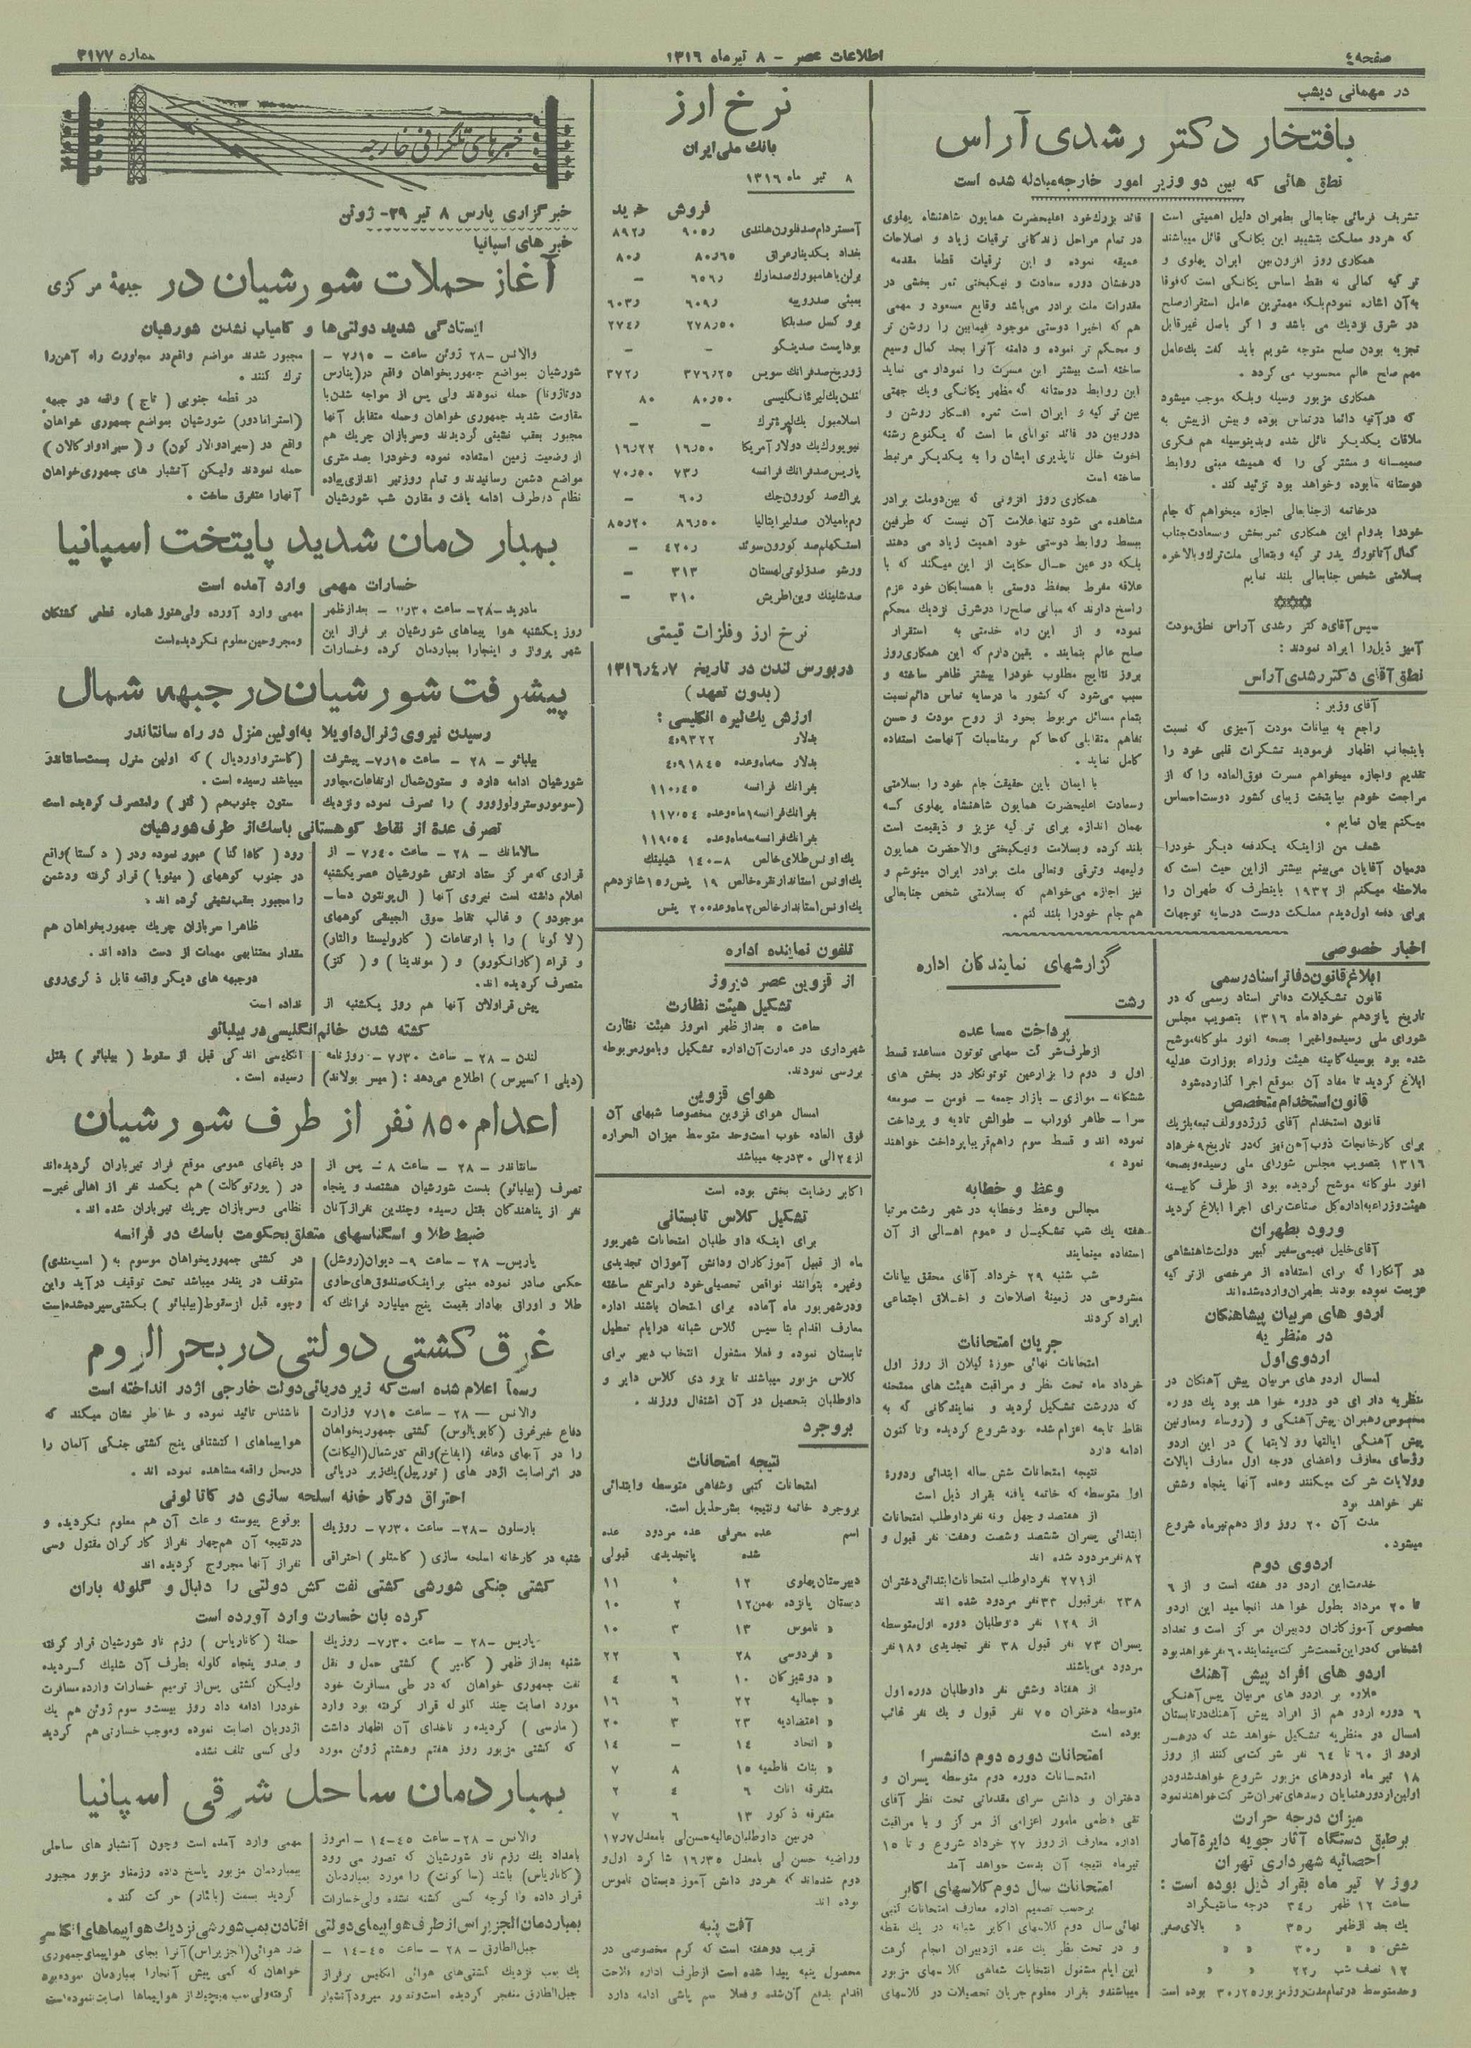 صفحه ٤
اطلاعات عصر - ٨ تیر ماه ١٣١٦
شماره ٣١٧٧
در مهمانی دیشب
بافتخار دکتر رشدی آراس
نطق هائی که بین دو وزیر امور خارجه مبادله شده است
تشریف فرمائی جنابعالی بطهران دلیل اهمیتی است
که هر دو مملکت بتشیید این یگانگی قائل میباشند
همکاری روز افزون بین ایران پهلوی و
ترکیه کمالی نه فقط اساس یگانگی است که فوقا
به آن اشاره نمودم بلکه مهمترین عامل استقرار صلح
در شرق نزدیک می باشد و اگر باصل غیر قابل
تجزیه بودن صلح متوجه شویم باید گفت یك عامل
مهم صلح عالم محسوب می گردد .
همکاری مزبور وسیله وبلکه موجب میشود
که در آتیه دائما در تماس بوده و بیش از پیش به
ملاقات یکدیگر نائل شده وبدینوسیله هم فکری
صمیمانه و مشترکی را که همیشه مبنی روابط
دوستانه مابوده وخواهد بود تزئید کند .
درخاتمه ازجنابعالی اجازه میخواهم که جام
خودرا بدوام این همکاری ثمر بخش وسعادت جناب
کمال آتاتورك پدر ترکیه وتعالی ملت ترك وبالاخره
بسلامتی شخص جنابعالی بلند نمایم
سپس آقای دکتر رشدی آراس نطق مودت
آمیز ذیل را ایراد نمودند :
نطق آقای دکتر رشدی آراس
آقای وزیر :
راجع به بیانات مودت آمیزی که نسبت
باینجانب اظهار فرمودید تشکرات قلبی خود را
تقدیم واجازه میخواهم مسرت فوق العاده را که از
مراجعت خودم بپایتخت زیبای کشور دوست احساس
میکنم بیان نمایم .
شعف من ازاینکه یکدفعه دیگر خودرا
درمیان آقایان می‌بینم بیشتر ازاین حیث است که
ملاحظه میکنم از ١٩٣٢ باینطرف که طهران را
برای دفعه اول دیدم مملکت دوست درسایه توجهات
قائد بزرك خود اعلیحضرت همایون شاهنشاه پهلوی
در تمام مراحل زندگانی ترقیات زیاد و اصلاحات
عمیقه نموده و این ترقیات قطعا مقدمه
درخشان دوره سعادت و نیکبختی ثمر بخشی در
مقدرات ملت برادر می‌باشد وقایع مسعود و مهمی
هم که اخیرا دوستی موجود فیمابین را روشن تر
و محکم تر نموده و دامنه آنرا بحد کمال وسیع
ساخته است بیشتر این مسرت را نمودار می نماید
این روابط دوستانه که مظهر یگانگی ویك جهتی
بین ترکیه و ایران است ثمره افکار روشن و
دوربین دو قائد توانای ما است که یکنوع رشته
اخوت خلل ناپذیری ایشان را به یکدیگر مرتبط
ساخته است
همکاری روز افزونی که بین دوملت برادر
مشاهده می شود تنها علامت آن نیست که طرفین
ببسط روابط دوستی خود اهمیت زیاد می دهند
بلکه در عین حال حکایت از این میکند که با
علاقه مفرط بحفظ دوستی با همسایگان خود عزم
راسخ دارند که مبانی صلح را درشرق نزدیك محکم
نموده و از این راه خدمتی به استقرار
صلح عالم بنمایند . یقین دارم که این همکاری روز
بروز نتایج مطلوب خودرا بیشتر ظاهر ساخته و
سبب می‌شود که کشور ما درسایه تماس دائم نسبت
بتمام مسائل مربوط بخود از روح مودت و حسن
تفاهم متقابلی که حاکم بر مناسبات آنهاست استفاده
کامل نماید .
با ایمان باین حقیقت جام خود را بسلامتی
وسعادت اعلیحضرت همایون شاهنشاه پهلوی که
بهمان اندازه برای ترکیه عزیز و ذیقیمت است
بلند کرده وبسلامت ونیکبختی والاحضرت همایون
ولیعهد وترقی وتعالی ملت برادر ایران مینوشم و
نیز اجازه می‌خواهم که بسلامتی شخص جنابعالی
هم جام خودرا بلند کنم .
اخبار خصوصی
ابلاغ قانون دفاتر اسناد رسمی
قانون تشکیلات دفاتر اسناد رسمی که در
تاریخ پانزدهم خرداد ماه ١٣١٦ بتصویب مجلس
شورای ملی رسیده واخیرا بصحه انور ملوکانه موشح
شده بود بوسیله کابینه هیئت وزراء بوزارت عدلیه
ابلاغ گردید تا مفاد آن بموقع اجرا گذارده شود
قانون استخدام متخصص
قانون استخدام آقای ژرژ دوولف تبعه بلژیك
برای کارخانجات ذوب آهن نیز که در تاریخ ٩ خرداد
١٣١٦ بتصویب مجلس شورای ملی رسیده وبصحه
انور ملوکانه موشح گردیده بود از طرف کابینه
هیئت وزراء به اداره کل صناعت برای اجرا ابلاغ گردید
ورود بطهران
آقای خلیل فهیمی سفیر کبیر دولت شاهنشاهی
در آنکارا که برای استفاده از مرخصی از ترکیه
عزیمت نموده بودند بطهران وارد شده‌اند
اردو های مربیان پیشاهنگان
در منظریه
اردوی اول
امسال اردو های مربیان پیش آهنگان در
منظریه دارای دو دوره خواهد بود یك دوره
مخصوص رهبران پیش آهنگی و (روساء ومعاونین
پیش آهنگی ایالتها وولایتها ) در این اردو
رؤسای معارف واعضای درجه اول معارف ایالات
وولایات شرکت میکنند وعده آنها پنجاه وشش
نفر خواهد بود
مدت آن ٢٠ روز واز دهم تیرماه شروع
میشود .
اردوی دوم
خدمت این اردو دو هفته است و از ٦
تا ٢٠ مرداد بطول خواهد انجامید این اردو
مخصوص آموزگاران ودبیران مرکز است و تعداد
اشخاص که در این قسمت شرکت مینمایند ٦٠ نفر خواهد بود
اردو های افراد پیش آهنك
علاوه بر اردو های مربیان پیش آهنگی
٦ دوره اردو هم از افراد پیش آهنك در تابستان
امسال در منظریه تشکیل خواهد شد که در هر
اردو از ٦٠ تا ٦٤ نفر شرکت می کنند از روز
١٨ تیر ماه اردوهای مزبور شروع خواهد شد ودر
اولین اردو رهنمایان رسدهای تهران شرکت خواهند نمود
میزان درجه حرارت
بر طبق دستگاه آثار جویه دایرة آمار
احصائیه شهرداری تهران
روز ٧ تیر ماه بقرار ذیل بوده است :
ساعت ١٢ ظهر ٣٤ر درجه سانتیگراد
یك بعد از ظهر ٣٥ر » بالای صفر
شش » » ٣٠ر » »
١٢ نصف شب ٢٢ر » »
وحد متوسط در تمام مدت روز مزبور ٣٠ر٢٥ بوده است
گزارشهای نمایندگان اداره
رشت
پرداخت مساعده
از طرف شرکت سهامی توتون مساعده قسط
اول و دوم را بزارعین توتونکار در بخش های
ششگانه - موازی - بازار جمعه - فومن - صومعه
سرا - طاهر گوراب - طوالش تادیه و پرداخت
نموده اند و قسط سوم را هم قریبا پرداخت خواهند
نمود .
وعظ و خطابه
مجالس وعظ وخطابه در شهر رشت مرتبا
هفته یك شب تشکیل و عموم اهالی از آن
استفاده مینمایند
شب شنبه ٢٩ خرداد آقای محقق بیانات
مشروحی در زمینهٔ اصلاحات و اخلاق اجتماعی
ایراد کردند
جریان امتحانات
امتحانات نهائی حوزهٔ گیلان از روز اول
خرداد ماه تحت نظر و مراقبت هیئت های ممتحنه
که دررشت تشکیل گردید و نمایندگانی که به
نقاط تابعه اعزام شده بود شروع گردیده وتا کنون
ادامه دارد
نتیجه امتحانات شش ساله ابتدائی ودورهٔ
اول متوسطه که خاتمه یافته بقرار ذیل است
از هفتصد و چهل ونه نفر داوطلب امتحانات
ابتدائی پسران ششصد وشصت وهفت نفر قبول و
٨٢ نفر مردود شده اند
از ٢٧١ نفر داوطلب امتحانات ابتدائی دختران
٢٣٨ نفر قبول ٣٣ نفر مردود شده اند
از ١٢٩ نفر داوطلبان دوره اول متوسطه
پسران ٧٣ نفر قبول ٣٨ نفر تجدیدی و ١٨ نفر
مردود می‌باشند
از هفتاد وشش نفر داوطلبان دوره اول
متوسطه دختران ٧٥ نفر قبول و یك نفر غائب
بوده است
امتحانات دوره دوم دانشسرا
امتحانات دوره دوم متوسطه پسران و
دختران و دانش سرای مقدماتی تحت نظر آقای
تقی فاطمی مامور اعزامی از مرکز و با مراقبت
اداره معارف از روز ٢٧ خرداد شروع و تا ١٥
تیرماه نتیجه آن بدست خواهد آمد
امتحانات سال دوم کلاسهای اکابر
برحسب تصمیم اداره معارف امتحانات کتبی
نهائی سال دوم کلاسهای اکابر شبانه در یك نقطه
و در تحت نظر یك عده از دبیران انجام گرفت
این ایام مشغول انتخابات شفاهی کلاسهای مزبور
میباشند و بقرار معلوم جریان تحصیلات در کلاسهای
نرخ ارز
بانك ملی ایران
٨ تیر ماه ١٣١٦
فروش خرید
آمستردام صد فلورن هلندی ٩٠٥ر ٨٩٢ر
بغداد یکدینار عراق ٨٠ر٦٥ ٨٠ر
برلن یا هامبورك صد مارك ٦٥٦ر -
بمبئی صد روپیه ٦٠٩ر ٦٠٣ر
بروکسل صد بلگا ٢٧٨ر٥٠ ٢٧٤ر
بوداپست صد پنگو - -
زوریخ صد فرانك سویس ٣٧٦ر٢٥ ٣٧٢ر
لندن یك لیره انگلیسی ٨٠ر٥٠ ٨٠
اسلامبول یك لیره ترك - -
نیویورك یك دولار آمریکا ١٦ر٥٠ ١٦ر٢٢
پاریس صد فرانك فرانسه ٧٣ر ٧٠ر٥٠
پراك صد کورون چك ٦٠ر -
رم یا میلان صد لیر ایتالیا ٨٦ر٥٠ ٨٥ر٢٠
استکهلم صد کورون سوئد ٤٢٠ر -
ورشو صد زلوتی لهستان ٣١٣ -
صد شلینك وین اطریش ٣١٠ -
نرخ ارز وفلزات قیمتی
در بورس لندن در تاریخ ١٣١٦ر٤ر٧
(بدون تعهد)
ارزش یك لیره انگلیسی :
بدلار ٤ر٩٣٢٢
بدلار سه ماه وعده ٤ر٩١٨٤٥
بفرانك فرانسه ١١٠ر٤٥
بفرانك فرانسه ١ ماه وعده ١١٧ر٥٤
بفرانك فرانسه سه ماه وعده ١١٩ر٥٤
یك اونس طلای خالص ٨-١٤٠ شیلینك
یك اونس استاندار نقره خالص ١٩ پنس و ١٥ شانزدهم
یك اونس استاندار خالص ٢ ماه وعده ٢٠ پنس
تلفون نماینده اداره
از قزوین عصر دیروز
تشکیل هیئت نظارت
ساعت ٥ بعد از ظهر امروز هیئت نظارت
شهرداری در عمارت آن اداره تشکیل وبامور مربوطه
بررسی نمودند.
هوای قزوین
امسال هوای قزوین مخصوصا شبهای آن
فوق العاده خوب است وحد متوسط میزان الحراره
از ٢٤ الی ٣٠ درجه میباشد
اکابر رضایت بخش بوده است
تشکیل کلاس تابستانی
برای اینکه داو طلبان امتحانات شهریور
ماه از قبیل آموزگاران ودانش آموزان تجدیدی
وغیره بتوانند نواقص تحصیلی خود را مرتفع ساخته
ودر شهریور ماه آماده برای امتحان باشند اداره
معارف اقدام بتاسیس کلاس شبانه در ایام تعطیل
تابستان نموده و فعلا مشغول انتخاب دبیر برای
کلاس مزبور میباشند تا بزودی کلاس دایر و
داوطلبان بتحصیل در آن اشتغال ورزند .
بروجرد
نتیجه امتحانات
امتحانات کتبی وشفاهی متوسطه وابتدائی
بروجرد خاتمه ونتیجه بشرح ذیل است.
اسم عده معرفی عده مردود عده
شده یا تجدیدی قبولی
دبیرستان پهلوی ١٢ ١١
دبستان پانزده بهمن ١٢ ٢ ١٠
» ناموس ١٣ ٣ ١٠
» فردوسی ٢٨ ٦ ٢٢
» دوشیزگان ١٠ ٦ ٤
» جمالیه ٢٢ ٦ ١٦
» اعتضادیه ٢٣ ٣ ٢٠
» اتحاد ١٤ - ١٤
» بنات فاطمیه ١٥ ٨ ٧
متفرقه اناث ٦ ٤ ٢
متفرقه ذکور ١٣ ٦ ٧
در بین داوطلبان عالیه حسن لی بامعدل ١٧ر٧
وراضیه حسن لی بامعدل ١٦ر٣٥ شاگرد اول و
دوم شده‌اند که هر دو دانش آموز دبستان ناموس
بوده اند
آفت پنبه
قریب دو هفته است که کرم مخصوصی در
محصول پنبه پیدا شده است از طرف اداره فلاحت
اقدام بدفع آن شده و فعلا سم پاشی ادامه دارد
خبرهای تلگرافی خارجه
خبرگزاری پارس ٨ تیر ٢٩- ژوئن
خبر های اسپانیا
آغاز حملات شورشیان در جبههٔ مرکزی
ایستادگی شدید دولتی‌ها و کامیاب نشدن شورشیان
والانس -٢٨ ژوئن ساعت - ٧ر١٥ -
شورشیان بمواضع جمهوریخواهان واقع در (پنارس
دوتازونا) حمله نمودند ولی پس از مواجه شدن با
مقاومت شدید جمهوری خواهان وحمله متقابل آنها
مجبور بعقب نشینی گردیدند وسربازان چریك هم
از وضعیت زمین استفاده نموده وخودرا بصد متری
مواضع دشمن رسانیدند و تمام روز تیر اندازی پیاده
نظام دو طرف ادامه یافت و مقارن شب شورشیان
مجبور شدند مواضع واقع در مجاورت راه آهن را
ترك کنند .
در قطعه جنوبی ( تاج ) واقعه در جبهه
(استرامادور) شورشیان بمواضع جمهوری خواهان
واقع در (سیرادولار گون) و (سیرادوارکالان )
حمله نمودند ولیکن آتشبار های جمهوری‌خواهان
آنهارا متفرق ساخت .
بمبار دمان شدید پایتخت اسپانیا
خسارات مهمی وارد آمده است
مادرید -٢٨- ساعت ٣٠ر - بعد از ظهر
روز یکشنبه هوا پیماهای شورشیان بر فراز این
شهر پرواز و اینجارا بمباردمان کرده وخسارات
مهمی وارد آورده ولی هنوز شماره قطعی کشتگان
ومجروحین معلوم نگردیده است
پیشرفت شورشیان در جبهه شمال
رسیدن نیروی ژنرال داویلا به اولین منزل در راه سانتاندر
بیلبائو - ٢٨ - ساعت ٧ر١٥- پیشرفت
شورشیان ادامه دارد و ستون شمال ارتفاعات مجاور
(سوموروسترو اوزورو) را تصرف نموده ونزدیك
(کاسترواوردیال) که اولین منزل بسمت سانتاندر
میباشد رسیده است .
ستون جنوب هم ( گنز ) را متصرف گردیده است
تصرف عدهٔ از نقاط کوهستانی باسك از طرف شورشیان
سالامانك - ٢٨ - ساعت ٧ر٤٠ - از
قراری که مرکز ستاد ارتش شورشیان عصر یکشنبه
اعلام داشته است نیروی آنها ( ال پونتون دسا-
موجودو ) و غالب نقاط سوق الجیشی کوههای
( لا گونا ) را با ارتفاعات ( کارولیستا والتار)
و قراء (کارانکورو) و ( موندینا ) و ( کنز)
متصرف گردیده اند.
پیش قراولان آنها هم روز یکشنبه از
رود ( کادا گنا ) عبور نموده ودر ( دگستا ) واقع
در جنوب کوههای ( مینویا ) قرار گرفته ودشمن
را مجبور بعقب‌نشینی کرده اند .
ظاهرا سربازان چریك جمهوریخواهان هم
مقدار معتنابهی مهمات از دست داده اند .
درجبهه های دیگر واقعه قابل ذکری روی
نداده است
کشته شدن خانم انگلیسی در بیلبائو
لندن - ٢٨ - ساعت ٧ر٣٠ - روزنامه
(دیلی اکسپرس ) اطلاع می‌دهد : (میس بولاند)
انگلیسی اندکی قبل از سقوط ( بیلبائو ) بقتل
رسیده است .
اعدام ٨٥٠ نفر از طرف شورشیان
سانتاندر - ٢٨ - ساعت ٨ - پس از
تصرف (بیلبائو) بدست شورشیان هشتصد و پنجاه
نفر از پناهندگان بقتل رسیده وچندین نفر از آنان
در باغهای عمومی موقع فرار تیرباران گردیده‌اند
در ( پورتوگالت ) هم یکصد نفر از اهالی غیر-
نظامی وسربازان چریك تیرباران شده اند .
ضبط طلا و اسکناسهای متعلق بحکومت باسك در فرانسه
پاریس- ٢٨ - ساعت ٩- دیوان (روشل)
حکمی صادر نموده مبنی بر اینکه صندوق های حاوی
طلا و اوراق بهادار بقیمت پنج میلیارد فرانك که
در کشتی جمهوریخواهان موسوم به ( اسپ‌مندی)
متوقف در بندر میباشد تحت توقیف درآید واین
وجوه قبل از سقوط (بیلبائو ) بکشتی سپرده شده است
غرق کشتی دولتی در بحر الروم
رسماً اعلام شده است که زیر دریائی دولت خارجی اژدر انداخته است
والانس - ٢٨ - ساعت ٧ر١٥ وزارت
دفاع خبر غرق (کابوپالوس) کشتی جمهوریخواهان
را در آبهای دماغه (ایفاخ) واقع در شمال (الیکانت)
در اثر اصابت اژدر های (تورپیل) یك زیر دریائی
ناشناس تائید نموده و خاطر نشان میکند که
هواپیماهای اکتشافی پنج کشتی جنگی آلمان را
در محل واقعه مشاهده نموده اند .
احتراق در کارخانه اسلحه سازی در کاتالونی
بارسلون -٢٨- ساعت ٧ر٣٠ - روز یك
شنبه در کارخانه اسلحه سازی ( کاستلو ) احتراقی
بوقوع پیوسته و علت آن هم معلوم نگردیده و
در نتیجه آن هم چهار نفر از کارگران مقتول وسی
نفر از آنها مجروح گردیده اند
کشتی جنگی شورشی کشتی نفت کش دولتی را دنبال و گلوله باران
کرده بان خسارت وارد آورده است
پاریس -٢٨ - ساعت ٧ر٣٠- روز یك
شنبه بعد از ظهر ( کامپر ) کشتی حمل و نقل
نفت جمهوری خواهان که در طی مسافرت خود
مورد اصابت چند گلوله قرار گرفته بود وارد
( مارسی ) گردیده و ناخدای آن اظهار داشت
که کشتی مزبور روز هفتم وهشتم ژوئن مورد
حملهٔ ( کاناریاس ) رزم ناو شورشیان قرار گرفته
و صدو پنجاه گلوله بطرف آن شلیك گردیده
ولیکن کشتی پس از ترمیم خسارات وارده مسافرت
خودرا ادامه داد روز بیست و سوم ژوئن هم یك
اژدربان اصابت نموده وموجب خسارتی هم گردید
ولی کسی تلف نشده
بمباردمان ساحل شرقی اسپانیا
والانس - ٢٨- ساعت ٤٥-١٤ - امروز
بامداد یك رزم ناو شورشیان که تصور می رود
(کاناریاس) باشد (ساگونت) را مورد بمباردمان
قرار داده واگرچه کسی کشته نشده ولی خسارات
مهمی وارد آمده است وچون آتشبار های ساحلی
ببمباردمان مزبور پاسخ داده رزمناو مزبور مجبور
گردید بسمت (باتار) حرکت کند .
بمباردمان الجزیراس از طرف هواپیمای دولتی افتادن بمب شورشی نزدیك هواپیماهای انگلیس
جبل‌الطارق - ٢٨ - ساعت ٤٥-١٤ -
یك بمب نزدیك کشتی‌های هوائی انگلیس بر فراز
جبل‌الطارق منفجر گردیده است وتصور میرود آتشبار
ضد هوائی (الجزیراس) آنرا بجای هواپیمای جمهوری
خواهان که کمی پیش آنجارا بمباردمان نموده بود
گرفته ولی بمب بهیچیك از هواپیماها اصابت ننموده است